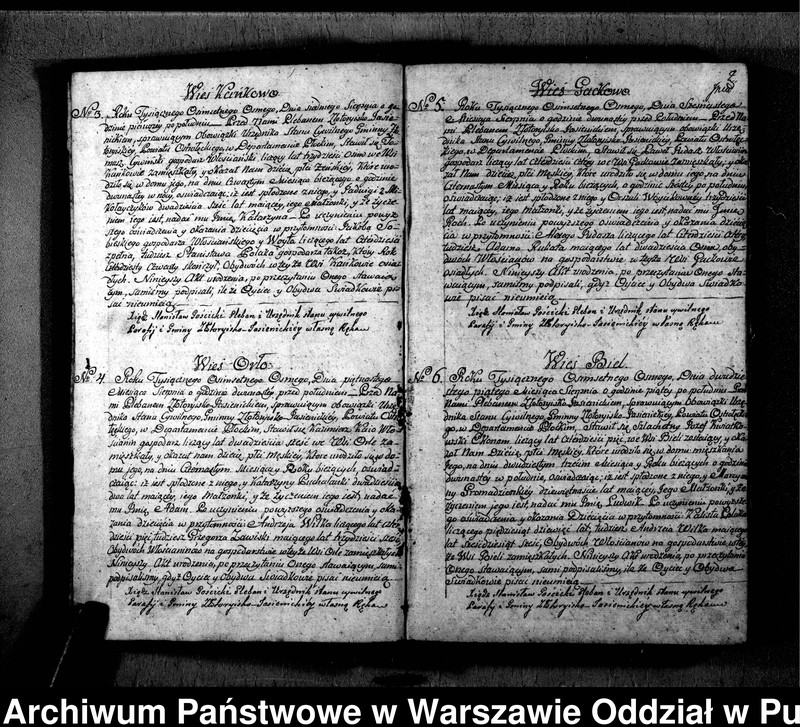 Wieś Kańkowo
Nro 3. Roku Tysiącznego Osimsetnego Osmego, Dnia siodmego Sierpnia o go-
dzinie pierwszy, po południu. Przed Nami Plebanem Złotoryisko Jasie-
nickim, sprawuiącym Obowiązki Urzędnika Stanu Cywilnego Gminny
Powiatu Ostrołęckiego, w Departamencie Płockim, Stawił się
gospodarz Włościanin liczący lat trzydzieści Osm we Wsi
Kańkowie zamięszkały, y okazał Nam dziecię płci Żeński, które uro-
dziło się w domu jego, na dniu czwartym Miesiąca bieżącego o godzinie
dwunasty w nocy, oświadczaiąc, iż jest spłodzone z niego, y Jadwigi z Mi-
kołayczyków dwadzieścia sześć lat maiącey, jego Małżonki, y że życze-
niem jego iest, nadać mu Jmię Katarzyna. Po uczynieniu powyż-
szego oświadczenia y okazania dziecięcia w przytomności Jakoba So-
bieskiego gospodarza Włościańskiego y Woyta liczącego lat czterdzieści
tudzież Stanisława Polaka gospodarza także, który Rok
czterdziesty czwarty skończył, Obydwóch w teyże Wsi Kańkowie osia-
dłych. Ninieyszy Akt urodzenia, po przeczytaniu Onego Stawaią-
cym, samiśmy podpisali, ile że Oyciec y Obydwa Świadkowie pi-
sać nieumieią
Xiądz Stanisław Gościcki Pleban i Urzędnik stanu cywilnego
Parafy i Gminy Złotoryisko-Jasienickiey własną Ręką
Wieś Orło
Nro 4. Roku Tysiącznego Osimsetnego Osmego, Dnia piętnastego
Miesiąca Sierpnia o godzinie dwunasty przed południem. Przed Na-
mi Plebanem Złotoryisko Jasienickim, sprawuiącym obowiązki Urzę-
dnika Stanu Cywilnego Gminny Złotoryisko Jasienickiey, Powiatu Ostro-
łęckiego, w Departamencie Płockim, Stawił się Kazimierz Włó-
ścianin gospodarz liczący lat dwadzieścia sześć we Wsi Orle za-
mięszkały, y okazał nam dziecię płci Męskiey, które urodziło się w do-
mu jego, na dniu Czternastym Miesiąca y Roku bieżących, oświad-
czaiąc: iż iest spłodzone z niego, y Katarzyny dwadzieścia
dwa lat maiącey, jego Małżonki, y że życzeniem iego iest, nadać
mu Jmię Adam. Po uczynieniu powyższego oświadczenia y oka-
zania dziecięcia w przytomności Andrzeja Wilka liczącego lat
tudzież Grzegorza Ławski maiącego lat trzydzieści sześć,
Obydwóch Włościanów na gospodarstwie w teyże Wsi Orle zamięszkałych
Ninieyszy Akt urodzenia, po przeczytaniu Onego Stawaiącym, sami
podpisaliśmy, gdyż Oyciec y Obydwa Świadkowie pisać nieumieią
Xiądz Stanisław Gościcki Pleban i Urzędnik stanu cywilnego
Parafy i Gminy Złotoryisko-Jasienickiey własną Ręką
2
Wieś Gackowo
Nro 5. Roku Tysiącznego Osimsetnego Osmego, Dnia Szesnastego
Miesiąca Sierpnia o godzinie dwunasty przed Południem. Przed Na-
mi Plebanem Złotoryisko Jasienickim, Sprawuiącym obowiązki Urzę-
dnika Stanu Cywilnego Gminny Złotoryisko Jasienickiey, Powiatu Ostrołę-
ckiego, w Departamencie Płockim, Stawił się Paweł Włościanin
gospodarz liczący lat czterdzieści trzy we Wsi Gackowie zamięszkały, y oka-
zał Nam dziecię płci Męskiey, które urodziło się w domu jego, na dniu
Czternastym Miesiąca y Roku bieżących, o godzinie szóstey po południu,
oświadczaiąc: iż iest spłodzone z niego y Urszuli trzydzieści
lat maiącey, jego Małżonki, y że życzeniem iego iest nadać mu Jmię
Roch. Po uczynieniu powyższego oświadczenia y okazania dziecię-
cia w przytomności liczącego lat czterdzieści
tudzież Adama Rukata maiącego lat dwadzieścia Osm, oby-
dwóch Włościanów na gospodarstwie w teyże Wsi Gackowie
osiadłych. Ninieyszy Akt urodzenia, po przeczytaniu Onego Sta-
waiącym, samiśmy podpisali, gdyż Oyciec y Obydwa Świadko-
wie pisać nieumieią
Xiądz Stanisław Gościcki Pleban i Urzędnik stanu cywilnego
Parafy i Gminy Złotoryisko-Jasienickiey własną Ręką
Wieś Biel
Nro 6. Roku Tysiącznego Osimsetnego Osmego, Dnia dwudzie-
stego piątego Miesiąca Sierpnia, o godzinie piątey po południu Przed
Nami Plebanem Złotoryisko Jasienickim, Sprawuiącym obowiązki Urzę-
dnika Stanu Cywilnego Gminny Złotoryisko Jasienickiey, Powiatu Ostrołęckie-
go, w Departamencie Płockim, Stawił się Szlachetny Józef Kwiatko-
wski Ekonom liczący lat czterdzieści pięć, we Wsi Bieli zostaiący, y oka-
zał Nam Dziecię, płci Męskiey, które urodziło się w domu mieszkania
Jego, na dniu dwudziestym trzecim Miesiąca y Roku bieżących o godzinie
dwunasty w południe, oświadczaiąc: iż iest spłodzone z niego, y Maryan-
ny Gromadzińskiey dziewiętnaście lat maiącey, Jego Małżonki, y że
życzeniem jego iest, nadać mu Jmię, Ludwik. Po uczynieniu powyższe-
go oświadczenia y okazania Dziecięcia w przytomności
liczącego pięćdziesiąt dziewięć lat, tudzież Andrzeja Wilka maiącego
lat sześćdziesiąt sześć, Obydwóch Włościanów na gospodarstwie w tey-
że Wsi Bieli zamięszkałych. Ninieyszy Akt urodzenia, po przeczytaniu
Onego Stawaiącym, sami podpisaliśmy, ile że Oyciec y Obydwa
Świadkowie pisać nieumieią
Xiądz Stanisław Gościcki Pleban i Urzędnik stanu cywilnego
Parafy i Gminy Złotoryisko-Jasienickiey własną Ręką
Archiwum Państwowe w Warszawie Oddział w Pu